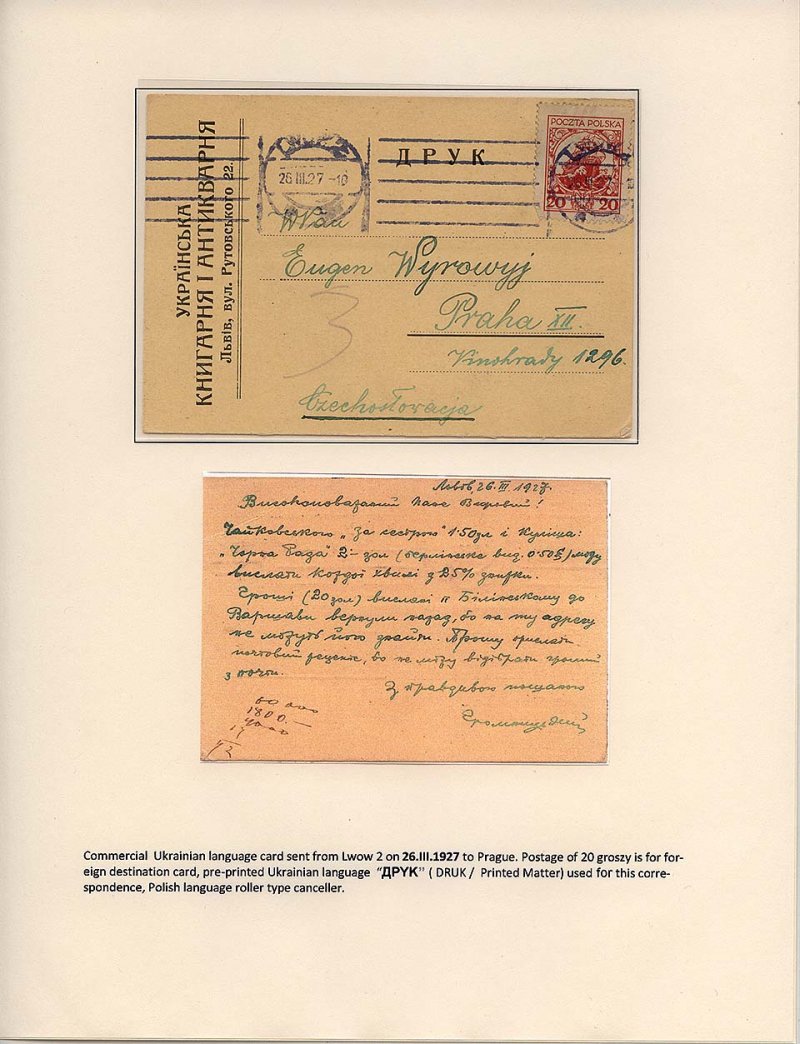 УКРАЇНСЬКА
КНИГАРНЯ І АНТИКВАРНЯ
Львів, вул. Рутовського 22.
26.III.27
ДРУК
POCZTA POLSKA
20 20
WPan
Eugen Wyrowyj
Praha XII.
Vinohrady 1296.
Czechosłowacja
3
Львов, 26. III 1927.
Високоповажаний Пане Вировий!
Чайковського „За сестрою" 1·50 зл і Куліша:
„Чорна Рада" 2·– зол (берлінське вид. 0·50 $) можу
вислати кождої хвилі з 25% знижки.
Гроші (20 зол) вислані п. Білінському до
Варшави вернули назад, бо на ту адресу
не можуть його знайти. Прошу прислати
почтовий рецепіс, бо не можу відібрати грошей
з почти.
З правдивою пошаною
1800.–
Commercial Ukrainian language card sent from Lwow 2 on 26.III.1927 to Prague. Postage of 20 groszy is for for-
eign destination card, pre-printed Ukrainian language “ДРУК” ( DRUK / Printed Matter) used for this corre-
spondence, Polish language roller type canceller.